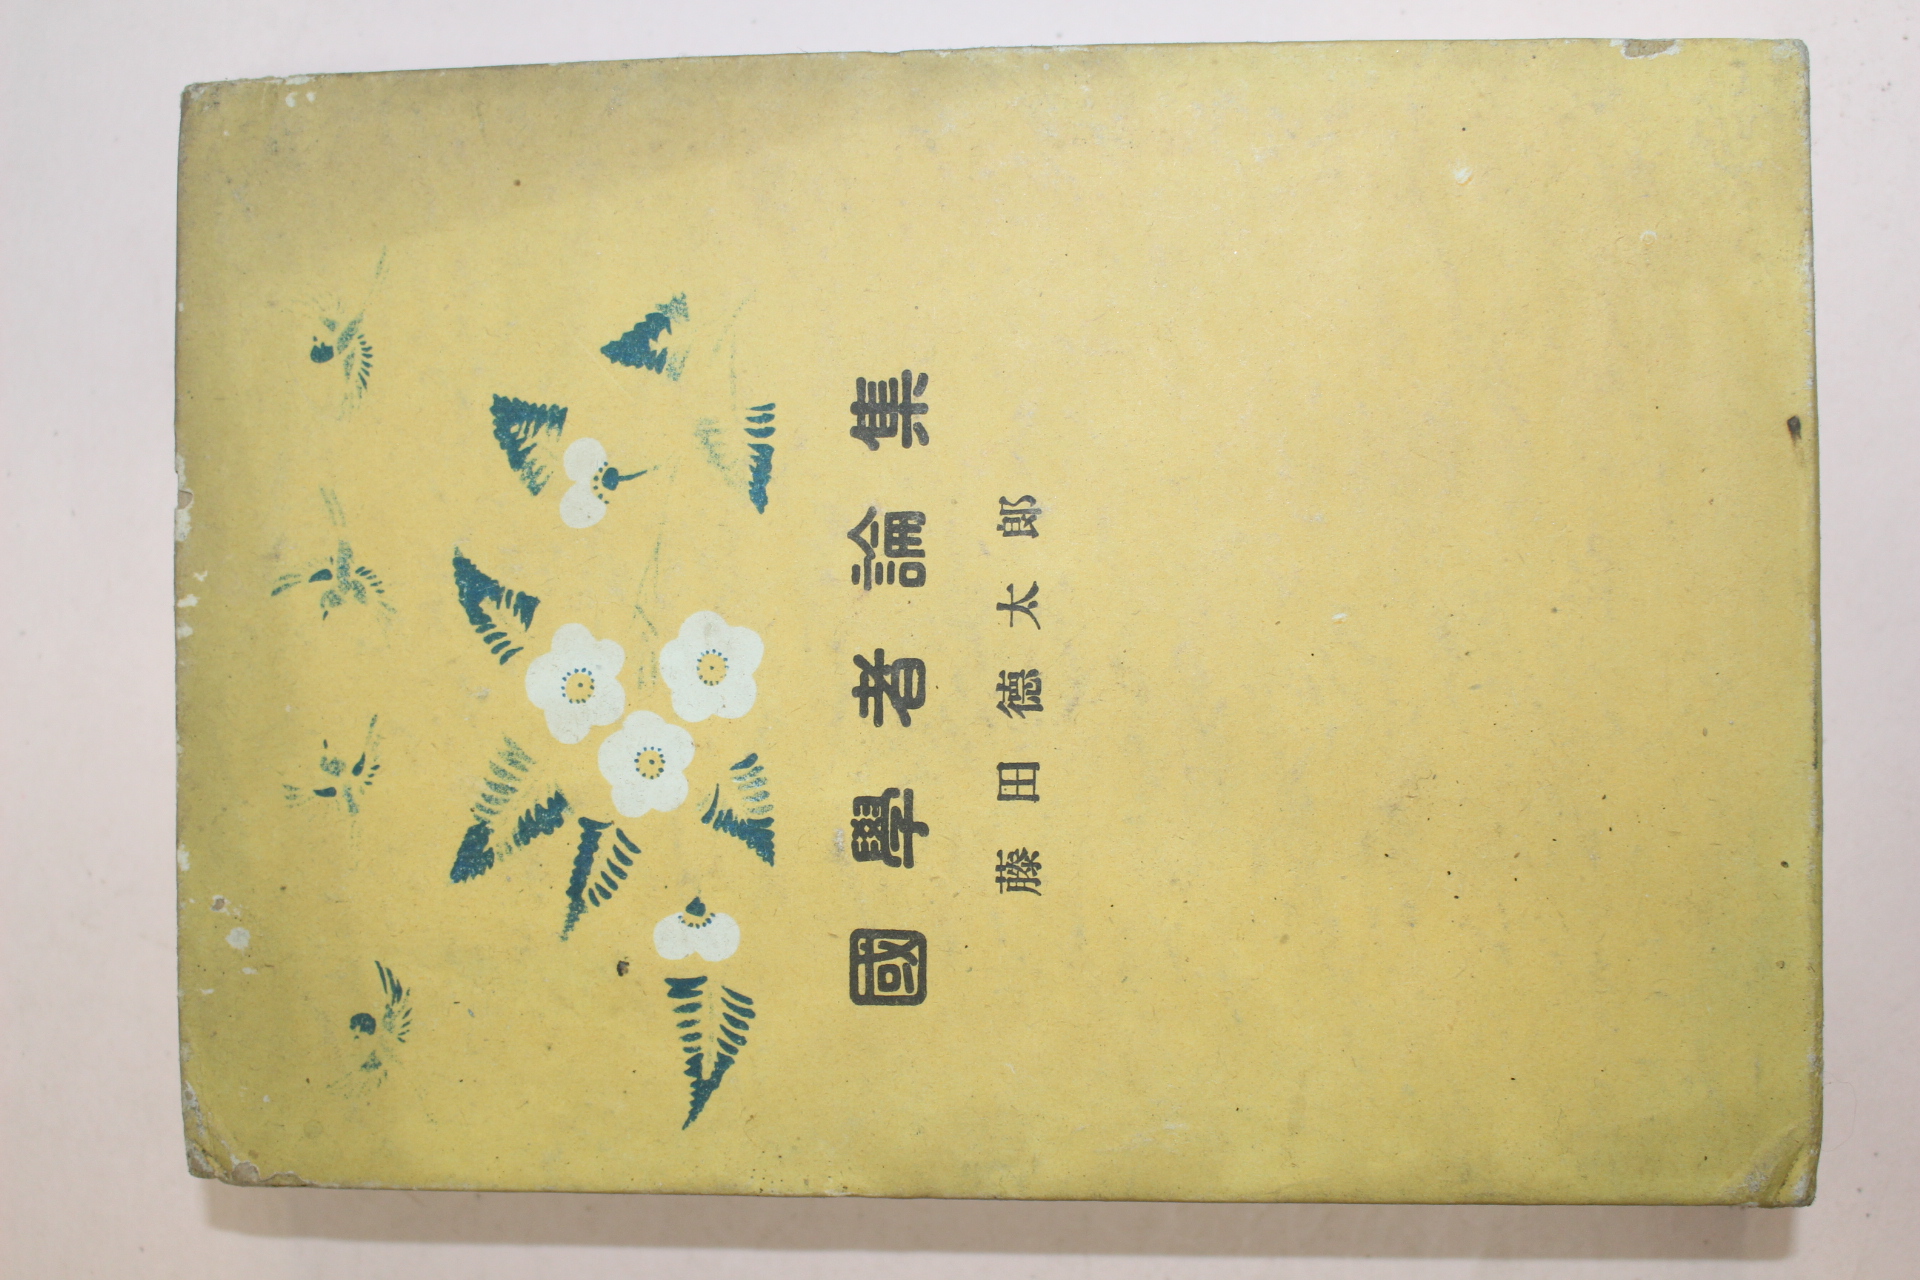 國學者論集
藤田德太郎